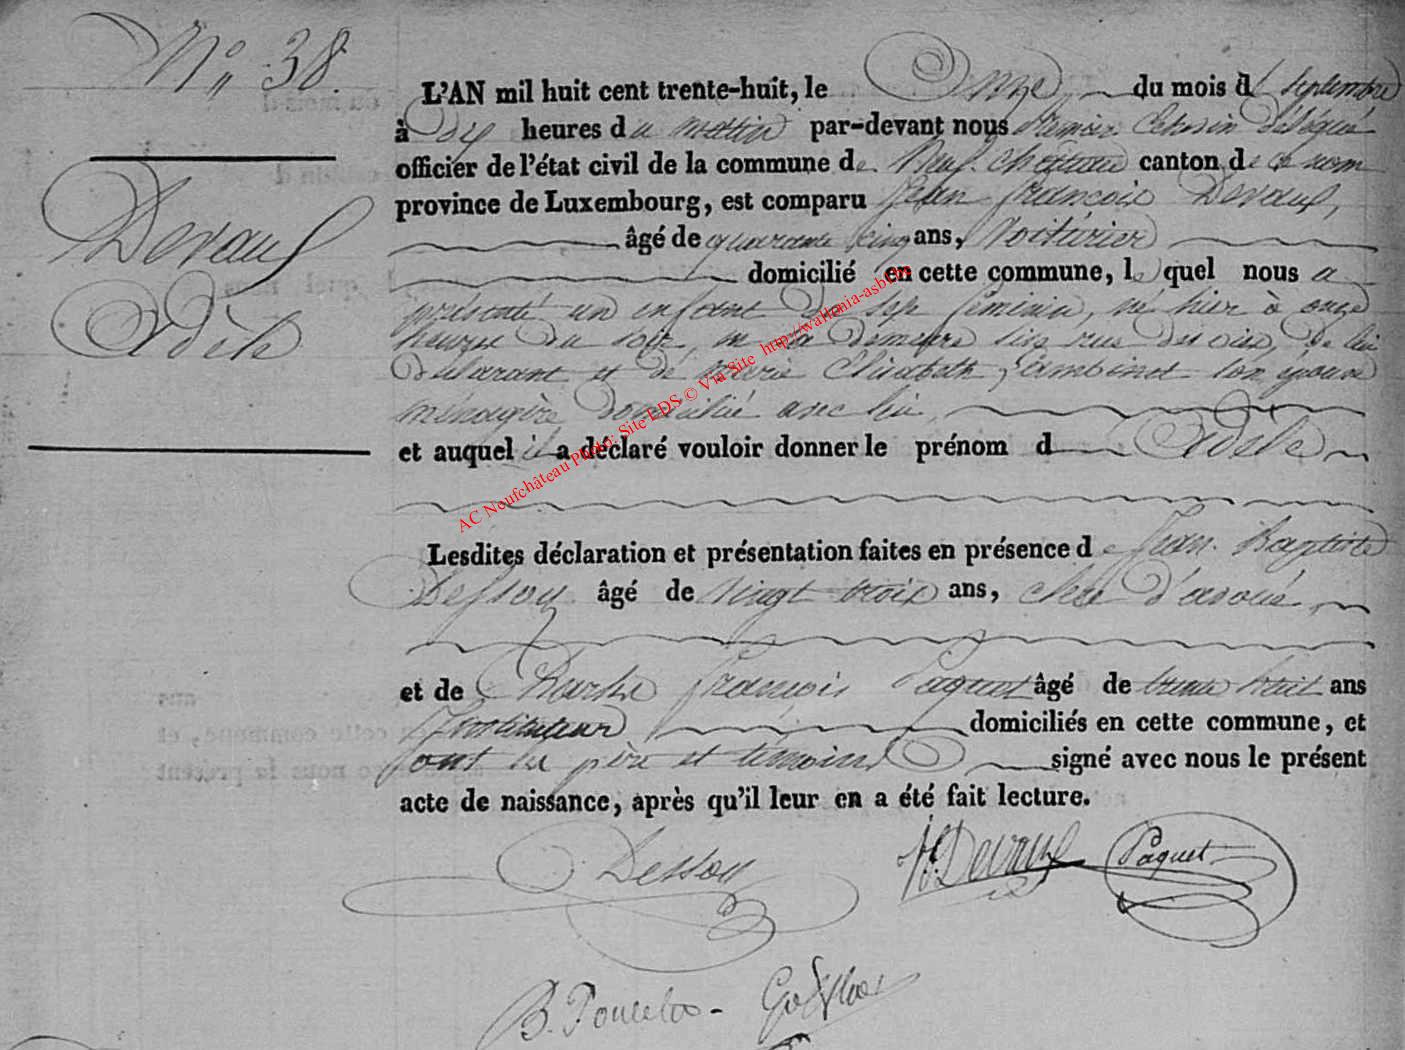 N° 38.
Devaux
Adèle
L'AN mil huit cent trente-huit, le Onze du mois de Septembre
à Dix heures du matin par-devant nous Echevin Délégué
officier de l'état civil de la commune de Neufchateau canton de ce nom
province de Luxembourg, est comparu Jean François Devaux,
âgé de quarante cinq ans, Voiturier
domicilié en cette commune, lequel nous a
présenté un enfant du sexe féminin, né hier à onze
heures du soir, en sa demeure sise rue de lui
déclarant et de Marie Elisabeth Lambinet son épouse
ménagère domiciliée avec lui,
et auquel il a déclaré vouloir donner le prénom d Adèle
Lesdites déclaration et présentation faites en présence de Jean Baptiste
Dessoy âgé de vingt trois ans, clerc d'avoué,
et de Charles François Paquet âgé de trente huit ans
Instituteur domiciliés en cette commune, et
ont les père et témoins signé avec nous le présent
acte de naissance, après qu'il leur en a été fait lecture.
Dessoy Devaux Paquet
B. Poncelet-
AC Neufchâteau Photo: Site EDS © Via Site http://wallonia-asbl.be